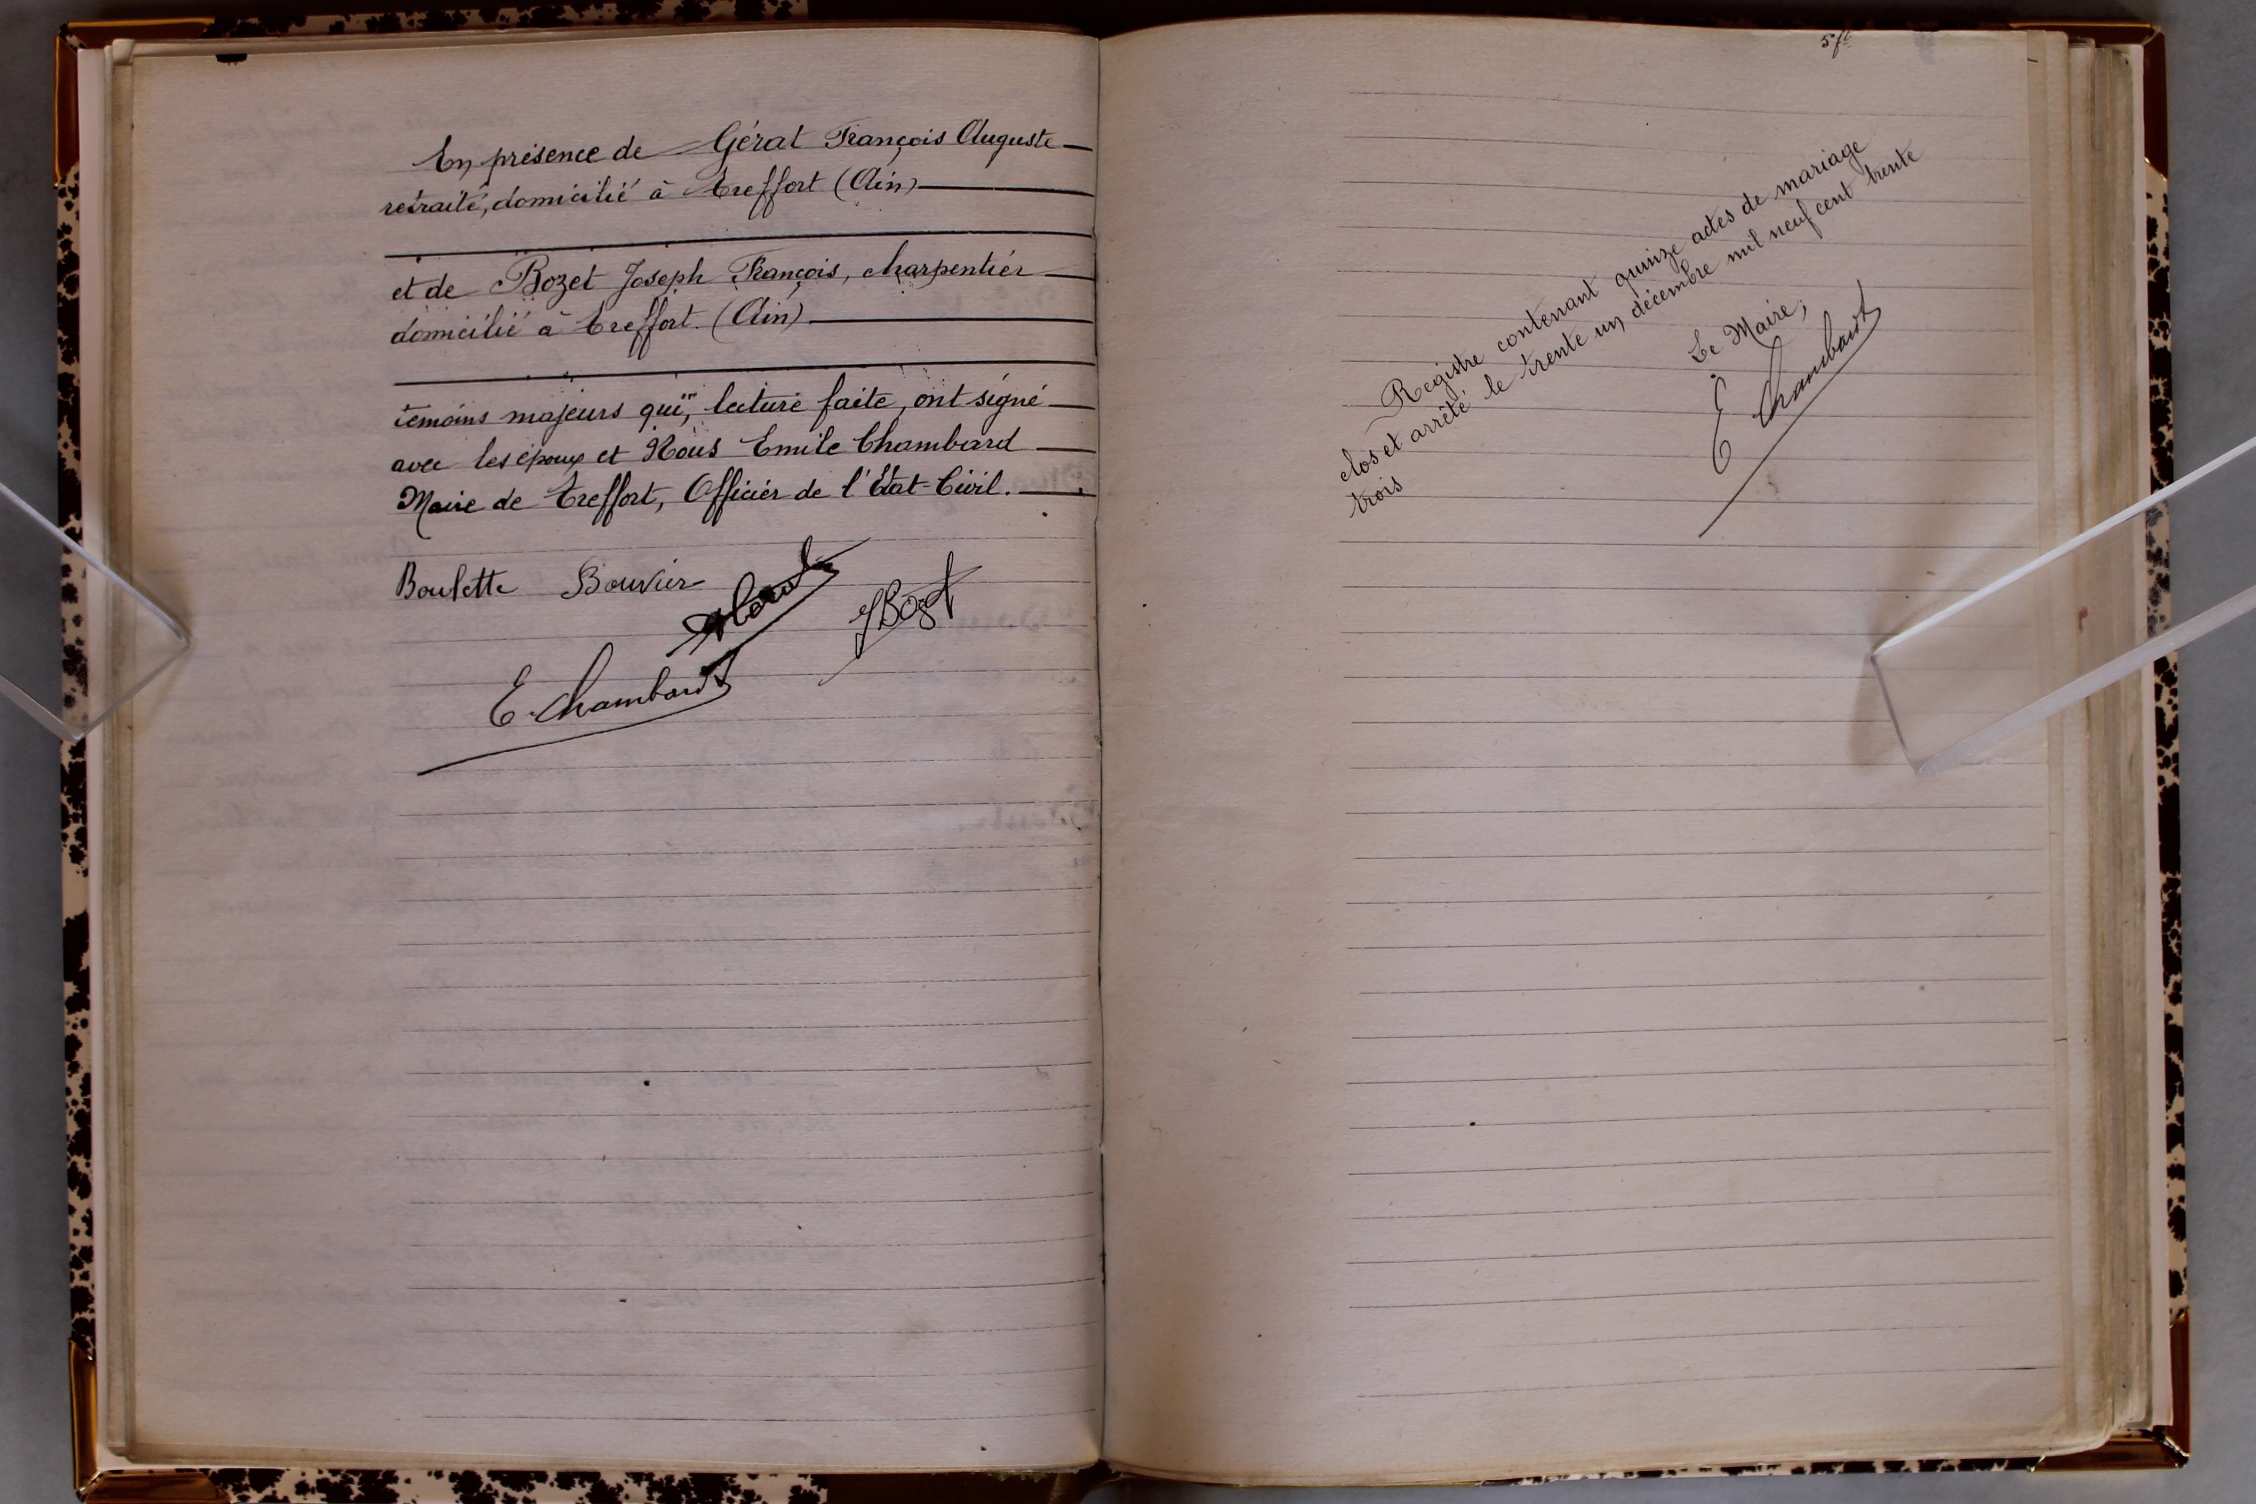 En présence de Gérat François Auguste
retraité, domicilié à Treffort (Ain)
et de Bozet Joseph François, charpentier
domicilié à Treffort. (Ain)
témoins majeurs qui, lecture faite, ont signé
avec les époux et Nous Emile Chambard
Maire de Treffort, Officier de l'Etat-Civil.
Boulette Bouvier
JBozet
E. Chambard
Registre contenant quinze actes de mariage
clos et arrêté le trente un décembre mil neuf cent trente
trois
Le Maire,
E Chambard